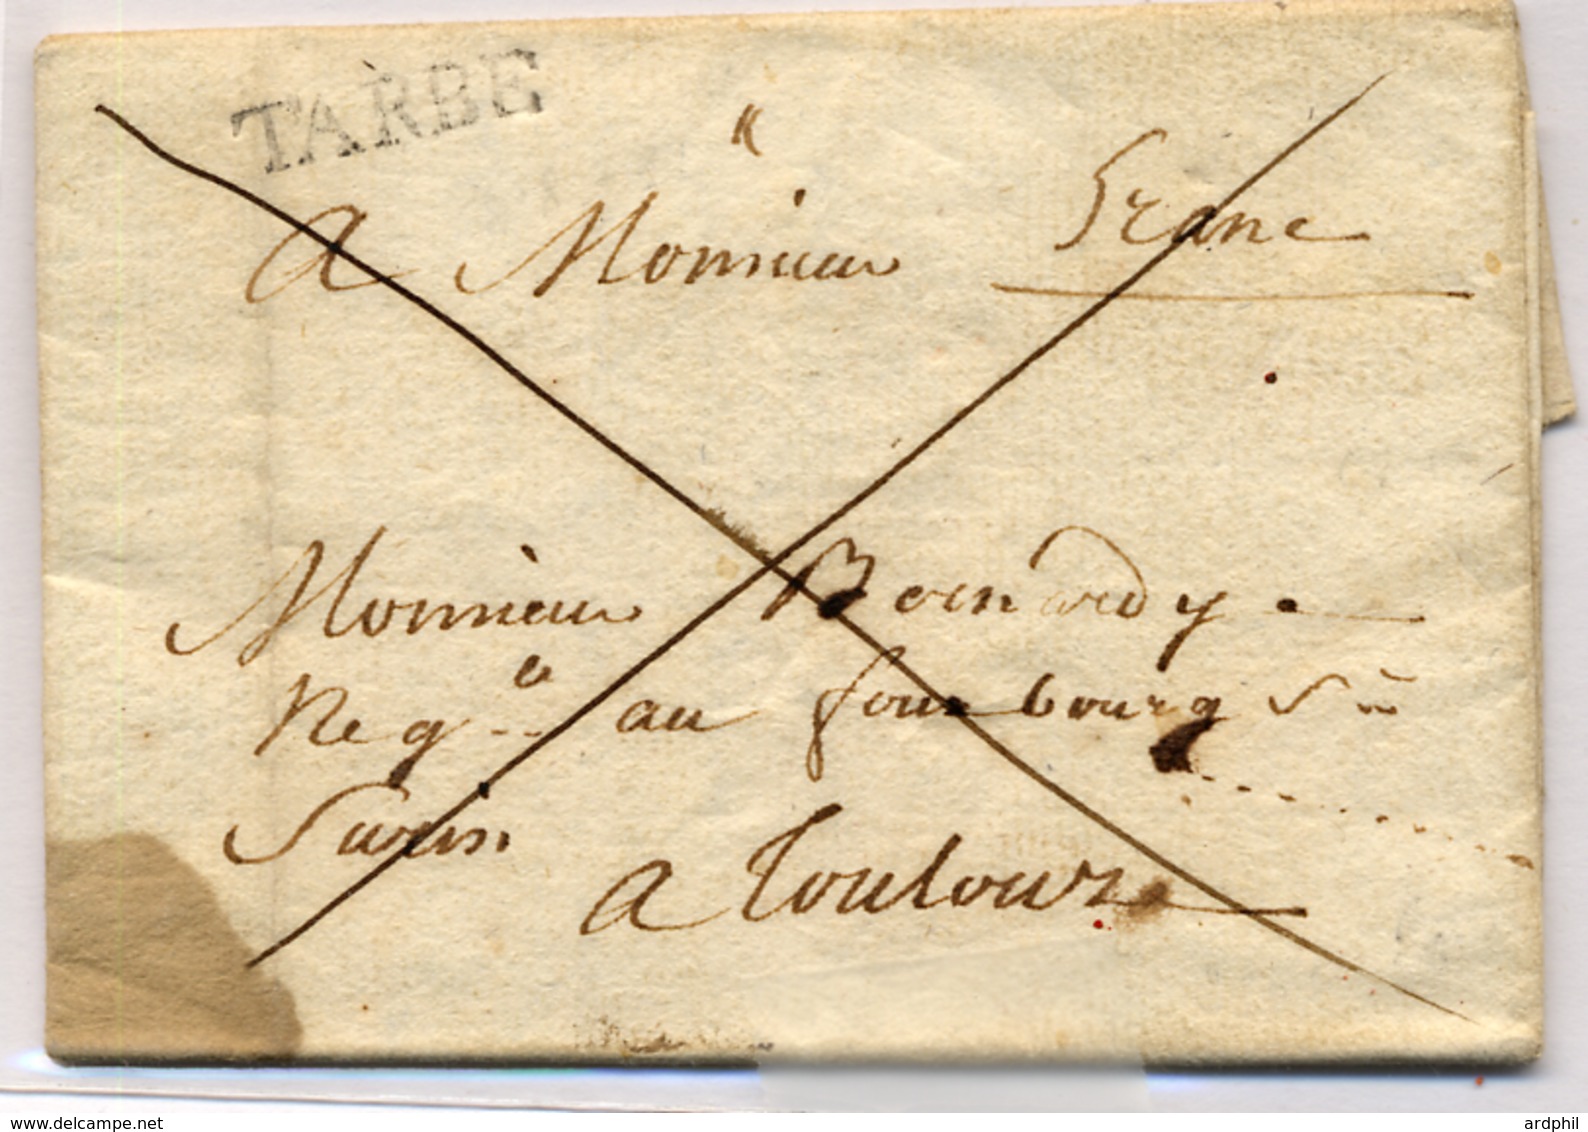 TARBE
A Monsieur franc
Monsieur Bernardy
Neg.t au fourbourg St
Suvin
a Toulouze
www.delcampe.net
ardphil